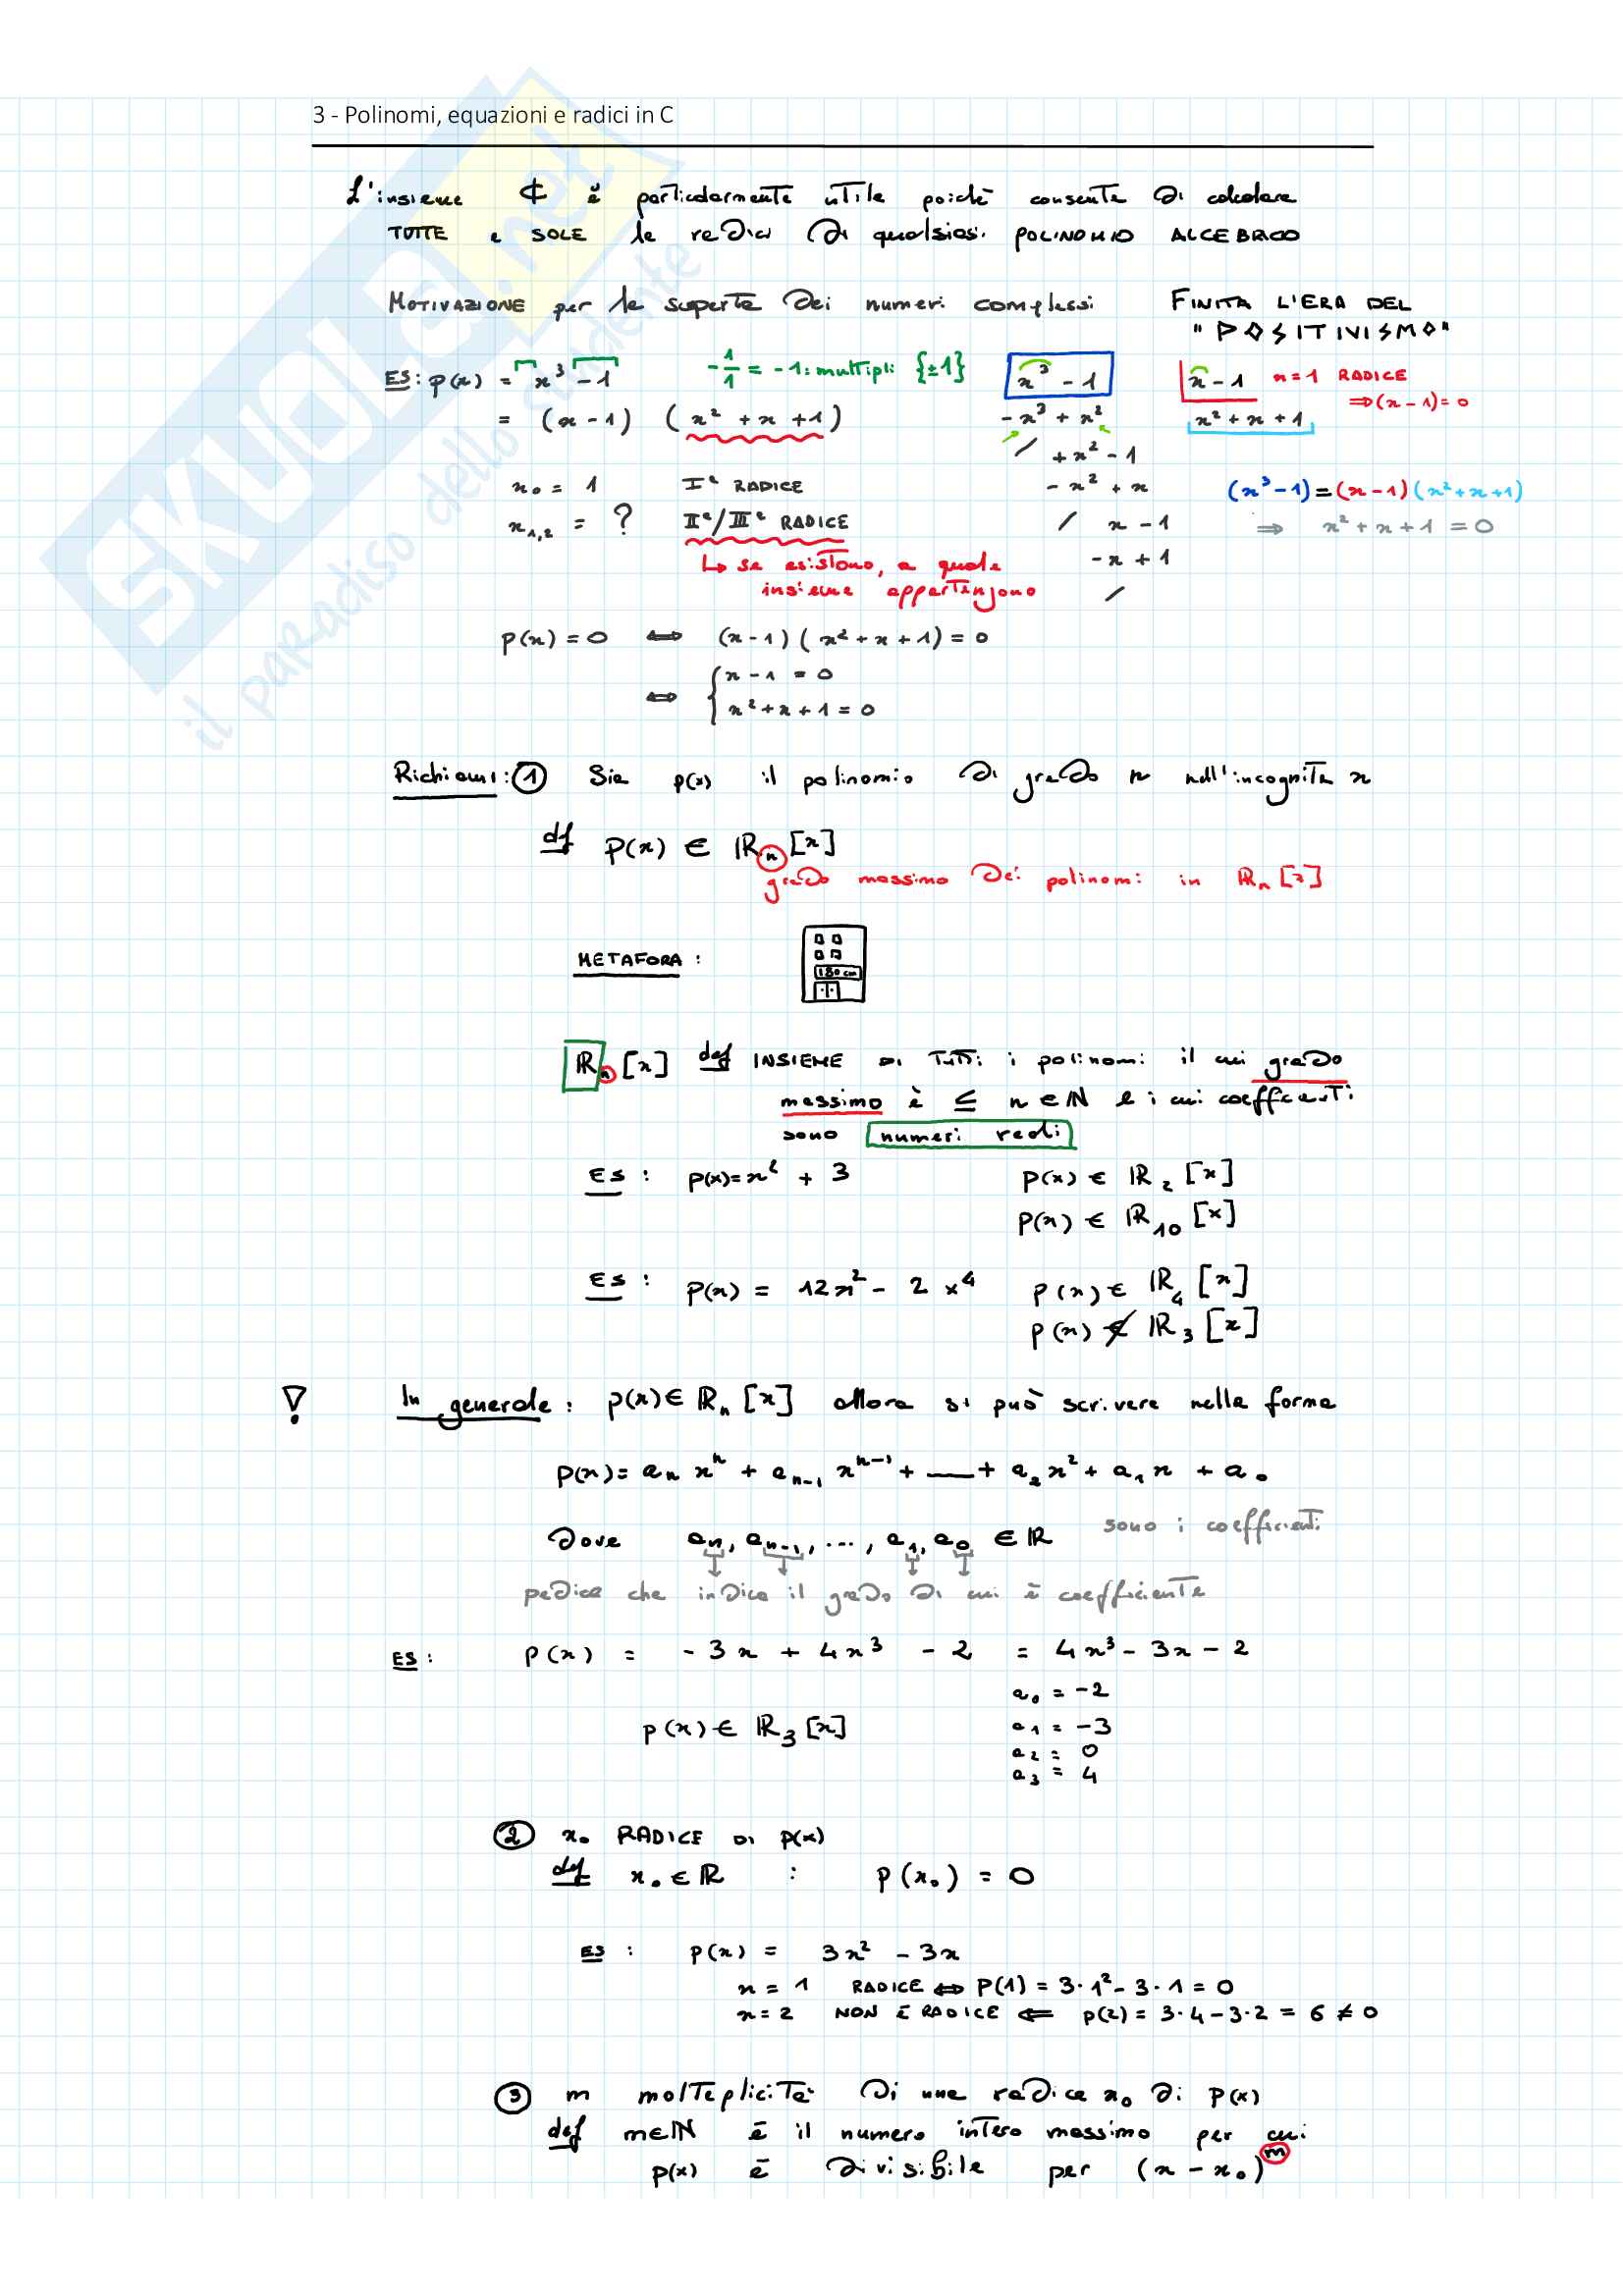 3 - Polinomi, equazioni e radici in C
L'insieme ₵ è particolarmente utile poichè consente di calcolare
TUTTE e SOLE le radici di qualsiasi POLINOMIO ALGEBRICO
MOTIVAZIONE per la scoperta dei numeri complessi
FINITA L'ERA DEL
"POSITIVISMO"
ES: p(x) = x³ - 1
-1/1 = -1: multipli {±1}
= (x - 1) (x² + x + 1)
x₀ = 1 Iᵃ RADICE
x₁,₂ = ? IIᵃ/IIIᵃ RADICE
↳ se esistono, a quale
insieme appartengono
x³ - 1
x - 1 x = 1 RADICE
⇒ (x - 1) = 0
- x³ + x²
x² + x + 1
/ + x² - 1
- x² + x
/ x - 1
- x + 1
/
(x³ - 1) = (x - 1) (x² + x + 1)
⇒ x² + x + 1 = 0
p(x) = 0 ⇔ (x - 1) (x² + x + 1) = 0
⇔ { x - 1 = 0
x² + x + 1 = 0
Richiami: ① Sia p(x) il polinomio di grado n nell'incognita x
def p(x) ∈ ℝₙ [x]
grado massimo dei polinomi in ℝₙ [x]
METAFORA :
180 cm
ℝₙ [x] def INSIEME DI TUTTI i polinomi il cui grado
massimo è ≤ n ∈ ℕ e i cui coefficienti
sono numeri reali
ES : p(x) = x² + 3 p(x) ∈ ℝ₂ [x]
p(x) ∈ ℝ₁₀ [x]
ES : p(x) = 12x² - 2x⁴ p(x) ∈ ℝ₄ [x]
p(x) ∉ ℝ₃ [x]
! In generale : p(x) ∈ ℝₙ [x] allora si può scrivere nella forma
p(x) = aₙ xⁿ + aₙ₋₁ xⁿ⁻¹ + — + a₂ x² + a₁ x + a₀
dove aₙ, aₙ₋₁, ..., a₁, a₀ ∈ ℝ sono i coefficienti
pedice che indica il grado di cui è coefficiente
ES : p(x) = - 3x + 4x³ - 2 = 4x³ - 3x - 2
a₀ = -2
p(x) ∈ ℝ₃ [x]
a₁ = -3
a₂ = 0
a₃ = 4
② x₀ RADICE DI p(x)
def x₀ ∈ ℝ : p(x₀) = 0
ES : p(x) = 3x² - 3x
x = 1 RADICE ⇔ p(1) = 3·1² - 3·1 = 0
x = 2 NON È RADICE ⇐ p(2) = 3·4 - 3·2 = 6 ≠ 0
③ m molteplicità di una radice x₀ di p(x)
def m∈ℕ è il numero intero massimo per cui
p(x) è divisibile per (x - x₀)ᵐ
SKUOLA.net
il paradiso dello studente